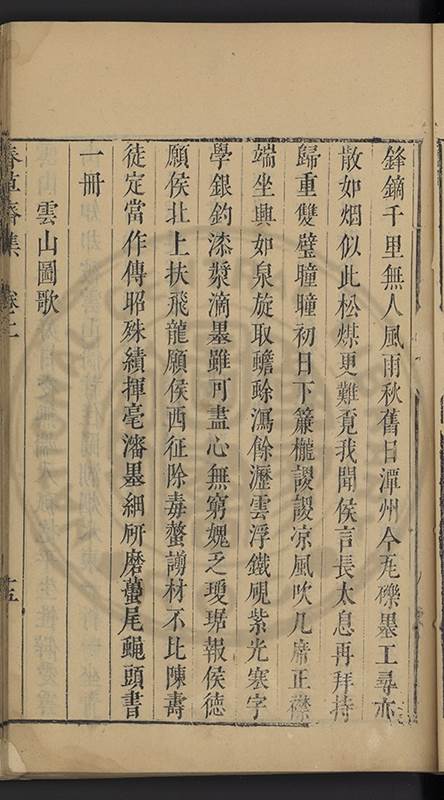 鋒鏑千里無人風雨秋舊日潭州今瓦礫墨工尋亦
散如烟似此松煤更難覓我聞侯言長太息再拜持
歸重雙璧瞳瞳初日下簾櫳謖謖凉風吹几席正襟
端坐興如泉旋取蟾蜍瀉餘瀝雲浮鐵硯紫光寒字
學銀鈎漆漿滴墨雖可盡心無窮媿乏瓊琚報侯德
願侯北上扶飛龍願侯西征除毒螫謭材不比陳壽
徒定當作傳昭殊績揮毫瀋墨細硏磨蠆尾蠅頭書
一冊
雲山圖歌
春草齋集 卷二 十五